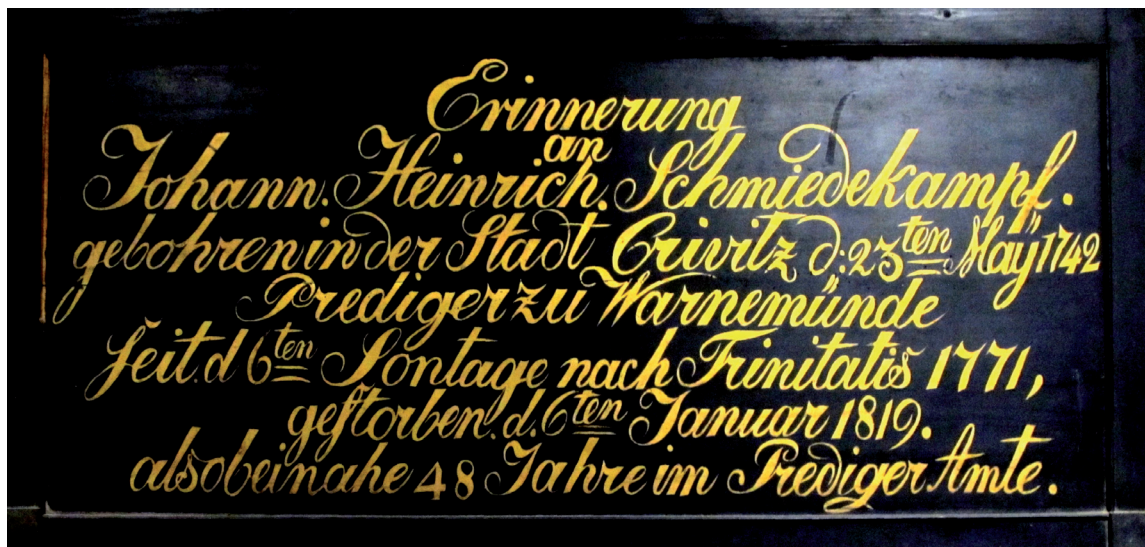 Erinnerung
an
Johann. Heinrich. Schmiedekampf.
gebohren in der Stadt Crivitz d: 23ten Maÿ 1742
Prediger zu Warnemünde
ſeit. d 6ten Sontage nach Trinitatis 1771,
geſtorben. d. 6ten Januar 1819.
also beinahe 48 Jahre im Prediger Amte.